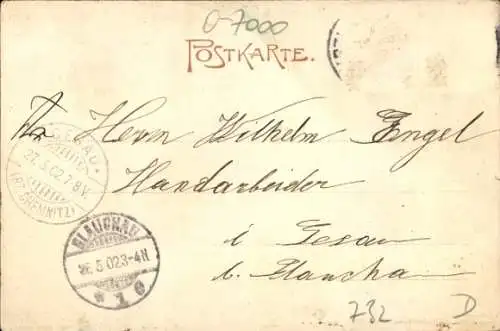 0-7000
POSTKARTE.
An Herrn Wilhelm Engel
Handarbeider
i Gesau
b. Glaucha
GESAU
27.5.02.7-8V.
(BZ. CHEMNITZ)
GLAUCHAU
26.5.02.3-4N
732
D